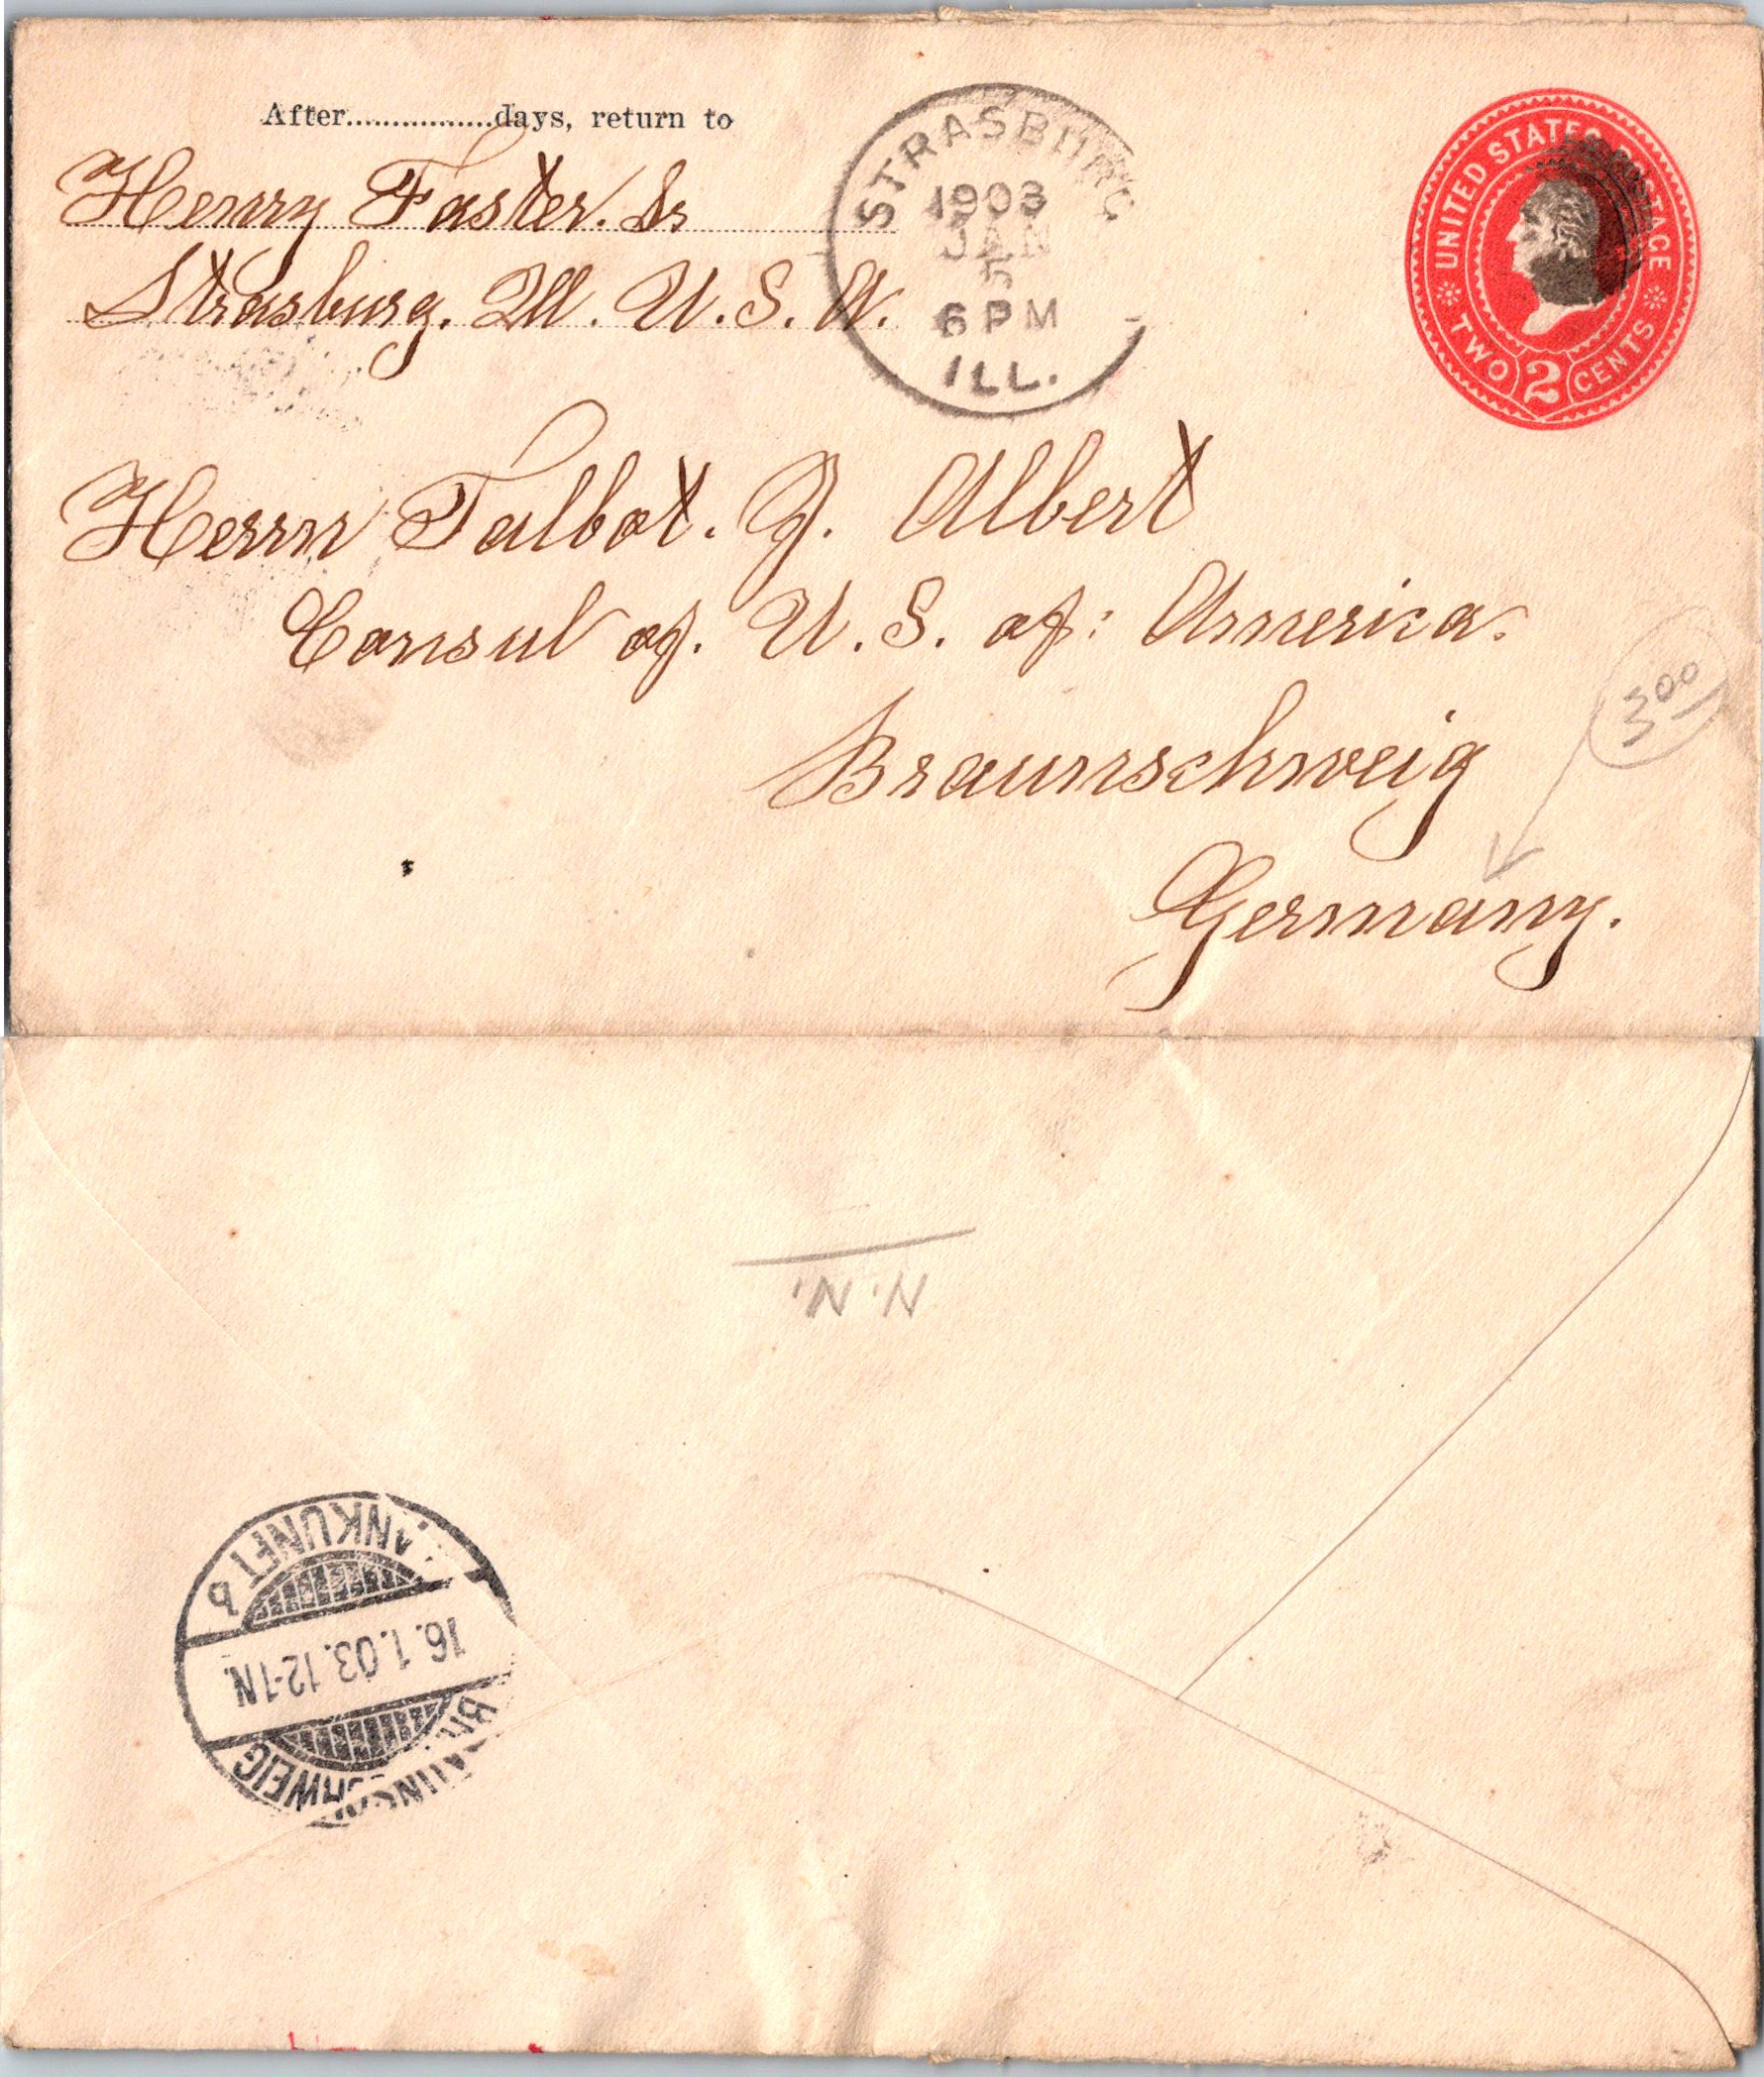 After................days, return to
Henry Faster. Sr
Strasburg. Ill. U. S. A.
STRASBURG
1903
JAN
5
6 PM
ILL.
UNITED STATES POSTAGE
TWO 2 CENTS
Herrn Talbot. J. Albert
Consul of. U. S. of: America.
Braunschweig
Germany.
3 00
N.N.
BRAUNSCHWEIG
16.1.03.12-1N.
ANKUNFT b